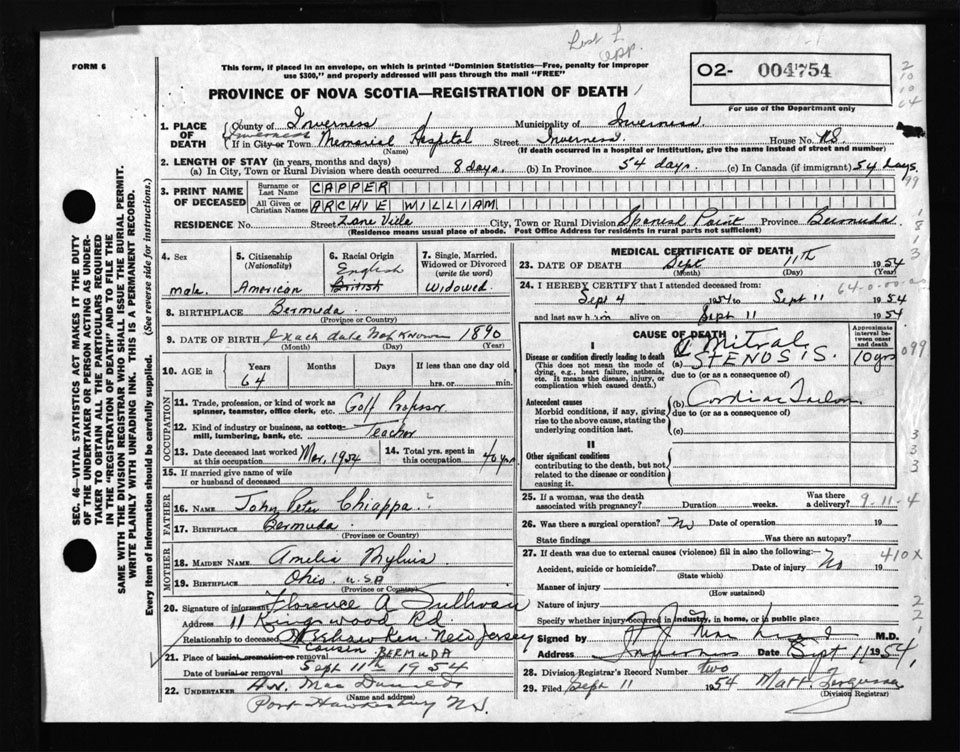 Lost L.
app.
FORM 6
This form, if placed in an envelope, on which is printed "Dominion Statistics—Free, penalty for improper
use $300," and properly addressed will pass through the mail "FREE"
O2- 004754
For use of the Department only
2
10
64
PROVINCE OF NOVA SCOTIA—REGISTRATION OF DEATH
1. PLACE OF DEATH
County of Inverness Municipality of Inverness
Inverness
If in City or Town Memorial Hospital Street Inverness House No. N.S.
(Name) (If death occurred in a hospital or institution, give the name instead of street and number)
2. LENGTH OF STAY (in years, months and days)
(a) In City, Town or Rural Division where death occurred 8 days. (b) In Province 54 days. (c) In Canada (if immigrant) 54 days
99
3. PRINT NAME OF DECEASED
Surname or Last Name CAPPER
All Given or Christian Names ARCHIE WILLIAM
RESIDENCE No. Street Zane Villa City, Town or Rural Division Spanish Point Province Bermuda
(Residence means usual place of abode. Post Office Address for residents in rural parts not sufficient)
1
8
1
3
SEC. 46—VITAL STATISTICS ACT MAKES IT THE DUTY
OF THE UNDERTAKER OR PERSON ACTING AS UNDER-
TAKER TO OBTAIN ALL THE PARTICULARS REQUIRED
IN THE "REGISTRATION OF DEATH" AND TO FILE THE
SAME WITH THE DIVISION REGISTRAR WHO SHALL ISSUE THE BURIAL PERMIT.
WRITE PLAINLY WITH UNFADING INK. THIS IS A PERMANENT RECORD.
Every item of information should be carefully supplied. (See reverse side for instructions.)
4. Sex
male
5. Citizenship
(Nationality)
American
6. Racial Origin
English
British
7. Single, Married,
Widowed or Divorced
(write the word)
Widowed
8. BIRTHPLACE Bermuda
(Province or Country)
9. DATE OF BIRTH Exact date not known 1890
(Month) (Day) (Year)
10. AGE in Years Months Days If less than one day old
64 hrs. or min.
OCCUPATION
11. Trade, profession, or kind of work as
spinner, teamster, office clerk, etc. Golf Professor
12. Kind of industry or business, as cotton-
mill, lumbering, bank, etc. Teacher
13. Date deceased last worked
at this occupation Mar. 1954
14. Total yrs. spent in
this occupation 40 yrs
15. If married give name of wife
or husband of deceased
FATHER
16. NAME John Peter Chiappa
17. BIRTHPLACE Bermuda
(Province or Country)
MOTHER
18. MAIDEN NAME Amelia Mylius
19. BIRTHPLACE Ohio U.S.A
(Province or Country)
20. Signature of informant Florence A Sullivan
Address 11 Kingswood Rd
Relationship to deceased Weehawken New Jersey
Cousin
21. Place of burial, cremation or removal BERMUDA
Date of burial or removal Sept 11th 1954
22. UNDERTAKER
(Name and address)
Port Hawkesbury N.S.
MEDICAL CERTIFICATE OF DEATH
23. DATE OF DEATH Sept 11th 1954
(Month) (Day) (Year)
24. I HEREBY CERTIFY that I attended deceased from: 64-0-00
Sept 4 1954 to Sept 11 1954
and last saw him alive on Sept 11 1954
CAUSE OF DEATH
Approximate
interval between
onset
and death
I
Disease or condition directly leading to death
(This does not mean the mode of
dying, e.g., heart failure, asthenia,
etc. It means the disease, injury, or
complication which caused death.)
(a) Mitral
STENOSIS. 10 yrs
099
due to (or as a consequence of)
Antecedent causes
Morbid conditions, if any, giving
rise to the above cause, stating the
underlying condition last.
(b) Cardiac Failure
due to (or as a consequence of)
(c)
II
Other significant conditions
contributing to the death, but not
related to the disease or condition
causing it.
3
3
3
25. If a woman, was the death
associated with pregnancy? Duration weeks. Was there
a delivery? 9-11-4
26. Was there a surgical operation? No Date of operation 19
State findings Was there an autopsy?
27. If death was due to external causes (violence) fill in also the following:—
410X
Accident, suicide or homicide? Date of injury No 19
(State which)
Manner of injury
(How sustained)
Nature of injury
Specify whether injury occurred in industry, in home, or in public place
2
2
1
Signed by M.D.
Address Inverness Date Sept 11 1954
28. Division Registrar's Record Number two
29. Filed Sept 11 1954 Matt. Ferguson
(Division Registrar)